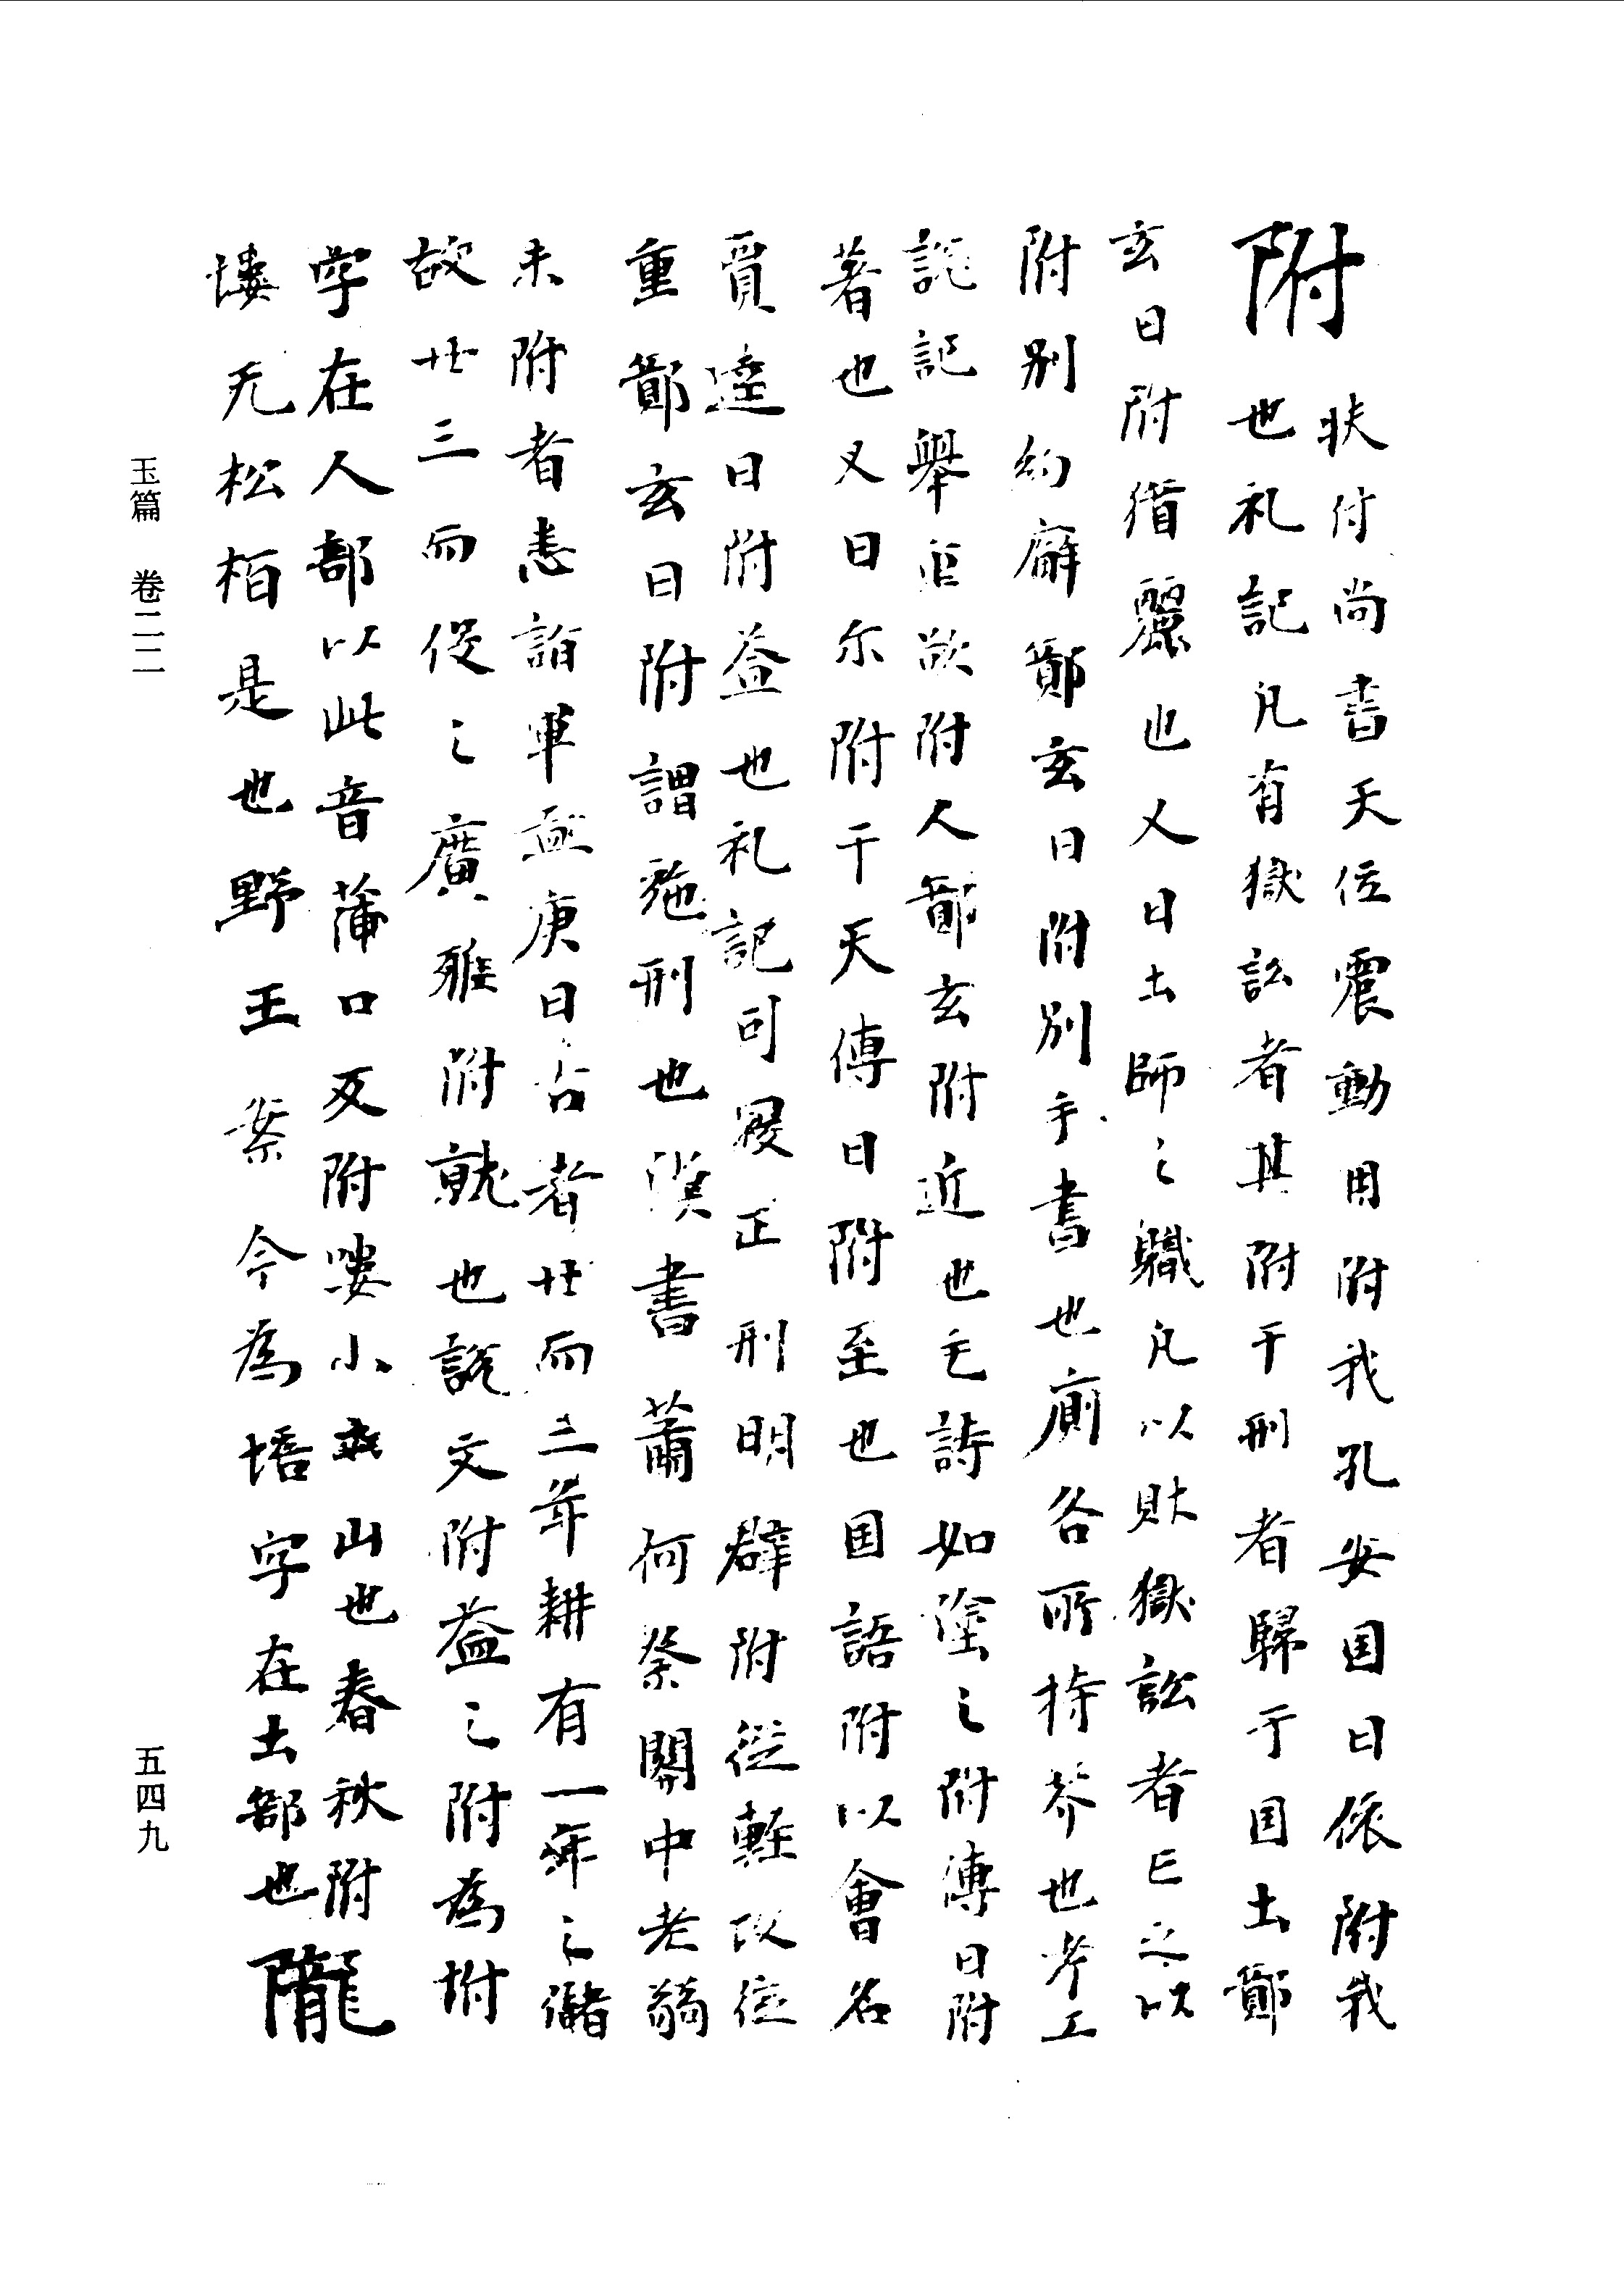 附
扶付尚書天位震動用附我孔安国曰依附我
也礼記凡有獄訟者其附干刑者歸于国土鄭
玄曰附猶麗也又曰士師之職凡以財獄訟者正之以
附別約廨鄭玄曰附別手書也廁各所持莽也考工
記記舉臣欲附人鄭玄附近也毛詩如塗之附傳曰附
著也又曰尔附干天傳曰附至也国語附以會名
賈逵曰附益也礼記司寇正刑明辟附從輕以從
重鄭玄曰附謂施刑也漢書蕭何祭關中老弱
未附者悉詣軍孟庚曰古者廿而三年耕有一年之儲
故廿三而役之廣雅附就也說文附益之附為坿
字在人部以此音蒲口反附嘍小土山也春秋附
塿无松栢是也野王案今為培字在土部也
隴
玉篇 卷二二
五四九